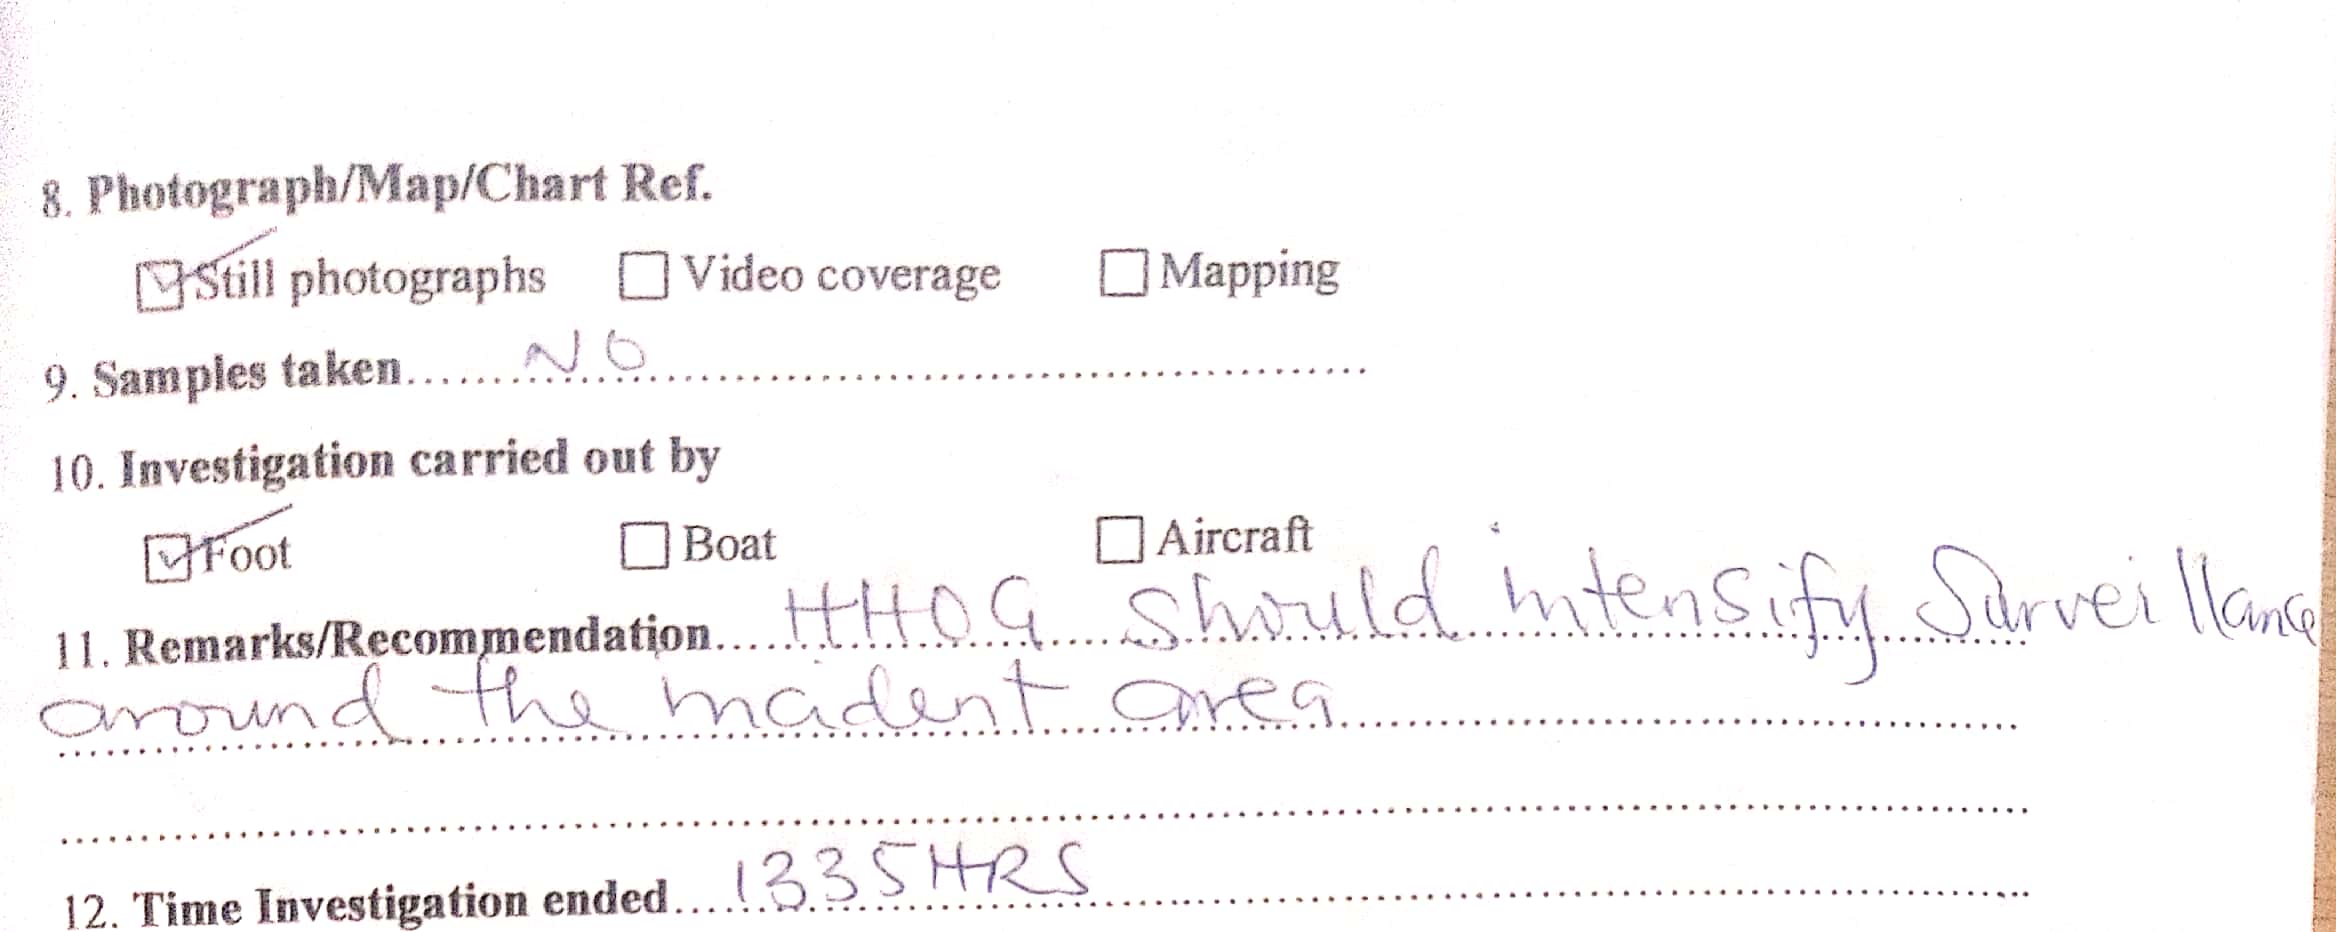 8. Photograph/Map/Chart Ref.
☑ Still photographs ☐ Video coverage ☐ Mapping
9. Samples taken......NO......
10. Investigation carried out by
☑ Foot ☐ Boat ☐ Aircraft
11. Remarks/Recommendation....HHOG should intensify Surveillance
around the incident area
12. Time Investigation ended....1335HRS